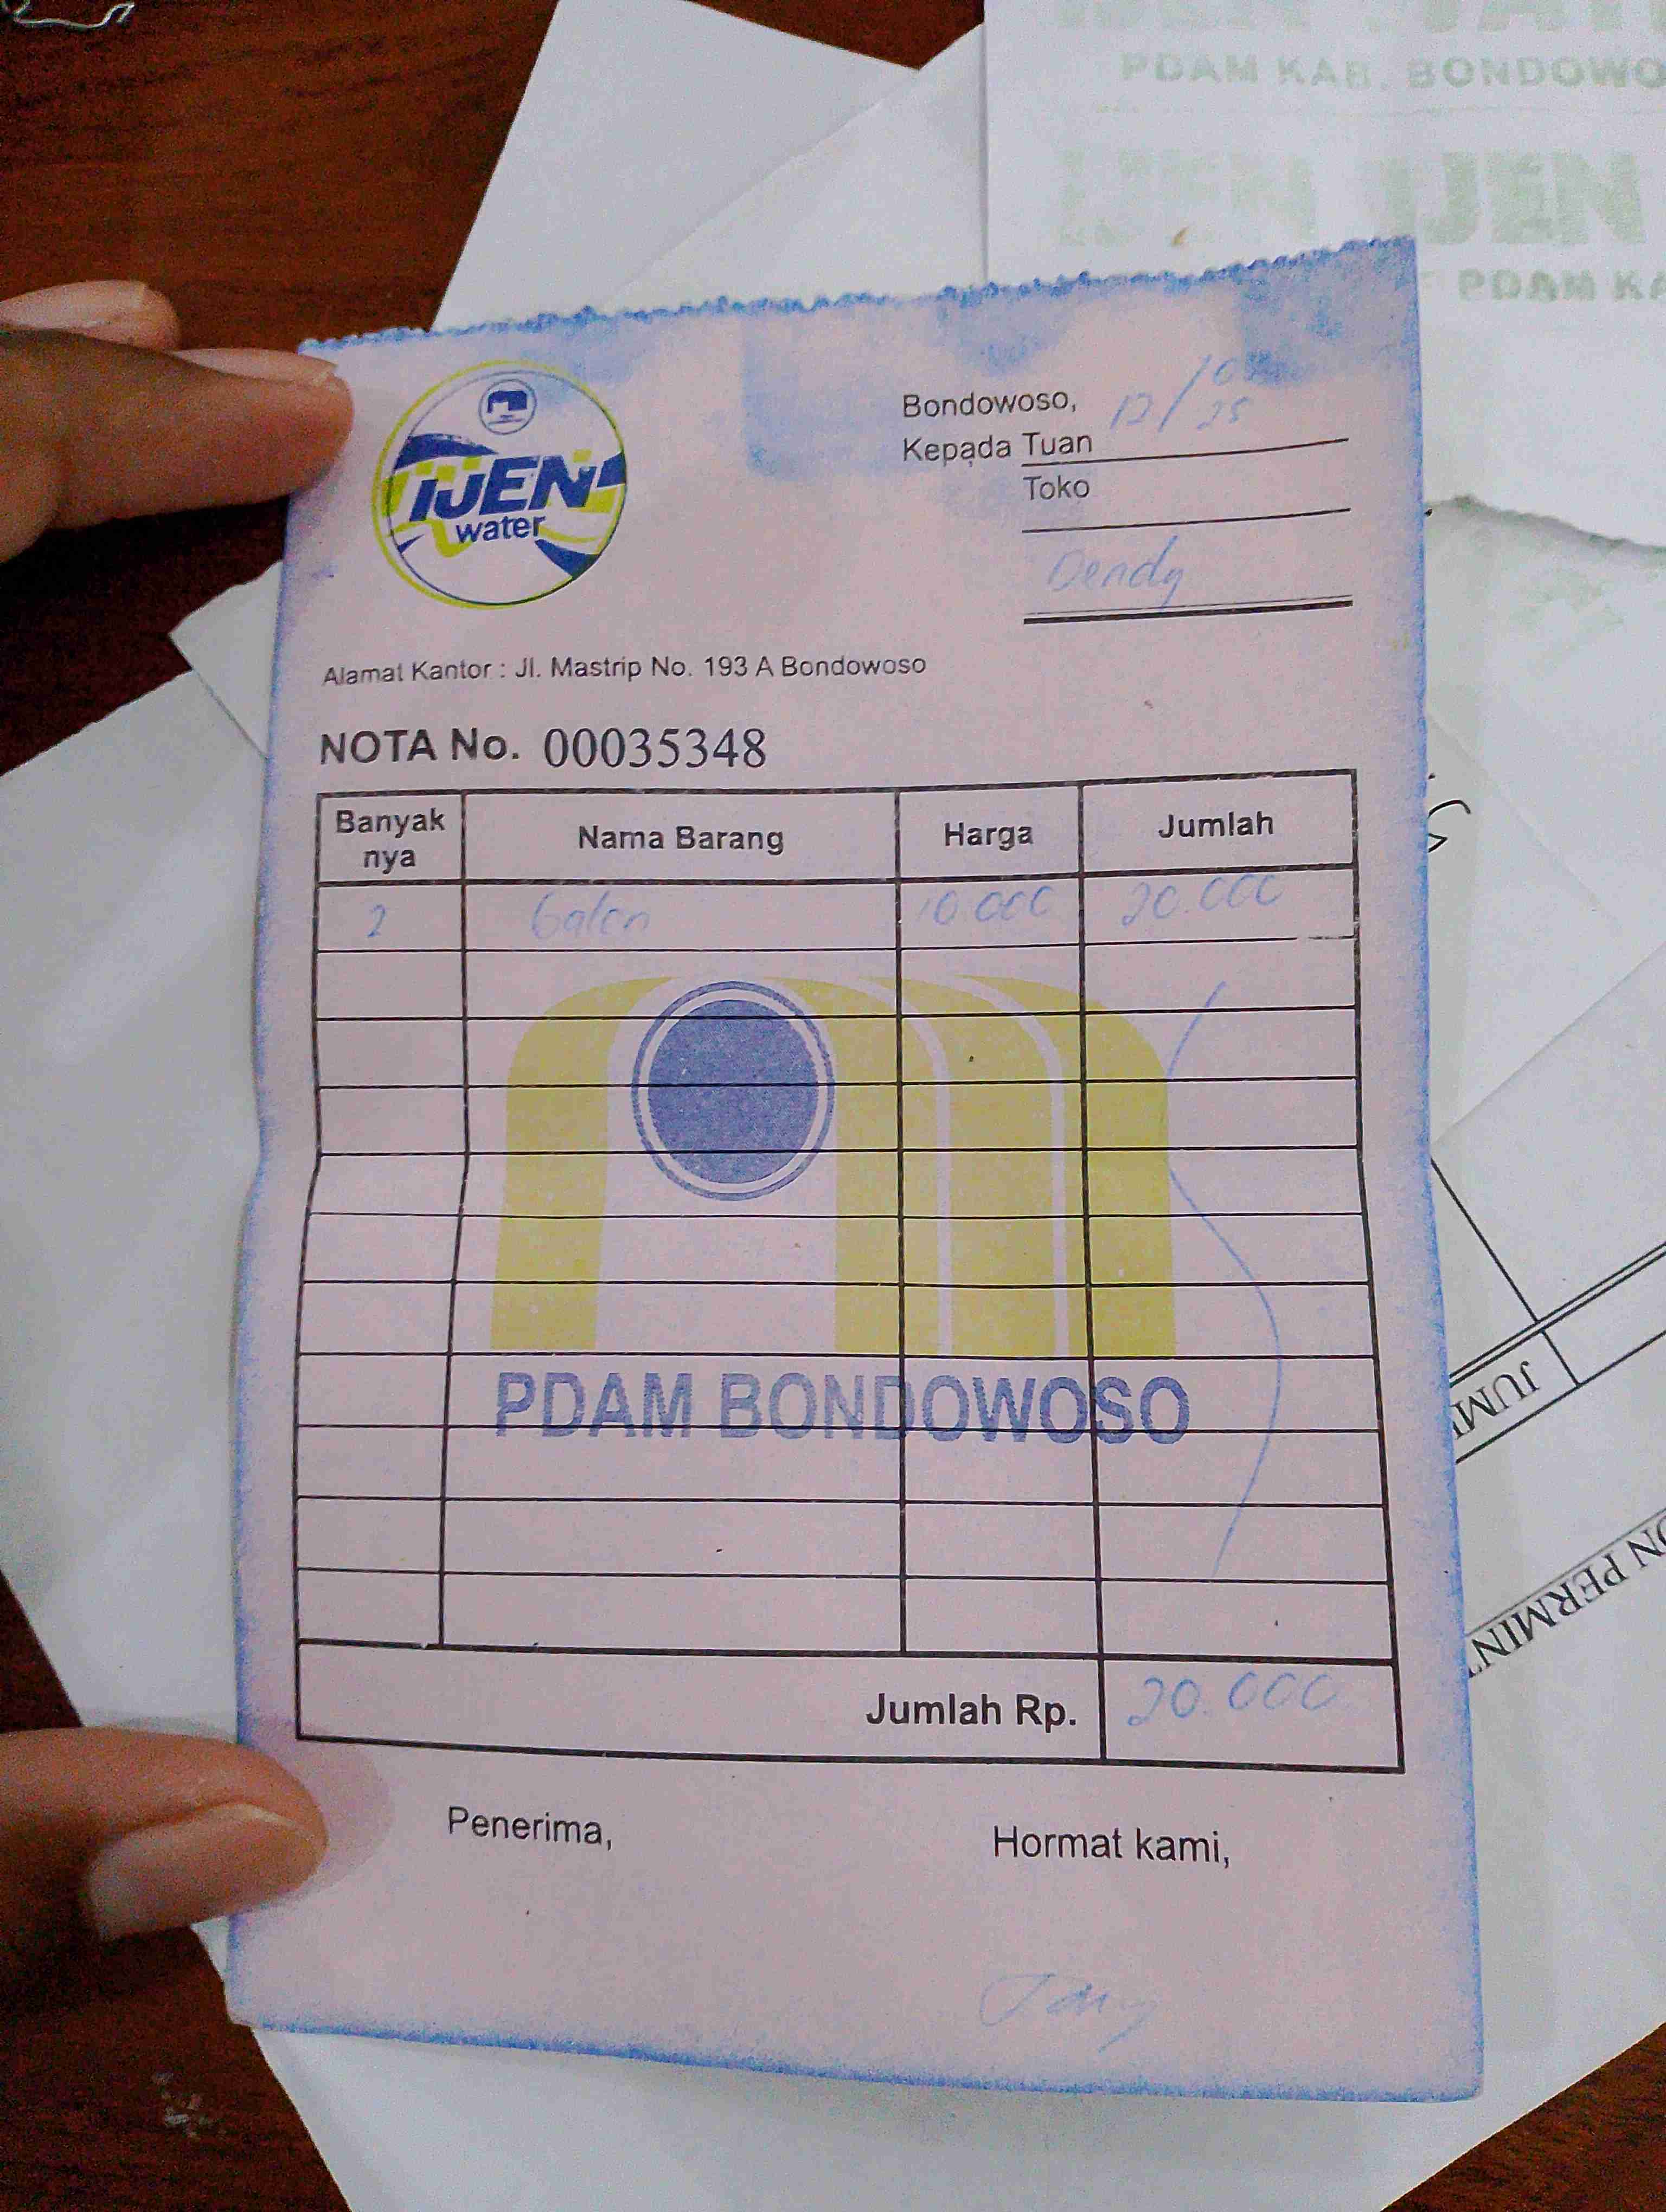 PDAM KAB. BONDOWO
IJEN IJEN
PDAM KA
IJEN
water
Bondowoso, 12/
25
Kepada Tuan
Toko
Dendy
Alamat Kantor : Jl. Mastrip No. 193 A Bondowoso
NOTA No. 00035348
Banyak nya Nama Barang Harga Jumlah
2 Galon 10.000 20.000
PDAM BONDOWOSO
Jumlah Rp. 20.000
Penerima, Hormat kami,
JUM
N PERMIN